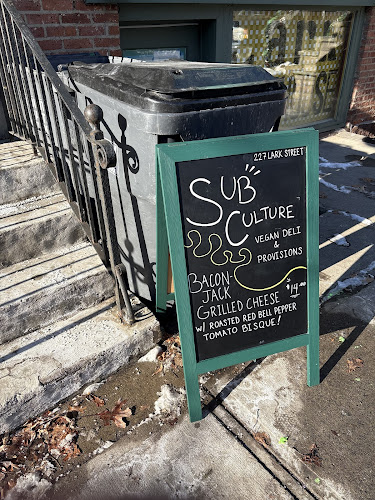 227 LARK STREET
SUB
CULTURE
VEGAN DELI
&
PROVISIONS
BACON-
JACK
GRILLED CHEESE $14.00
W/ ROASTED RED BELL PEPPER
TOMATO BISQUE!